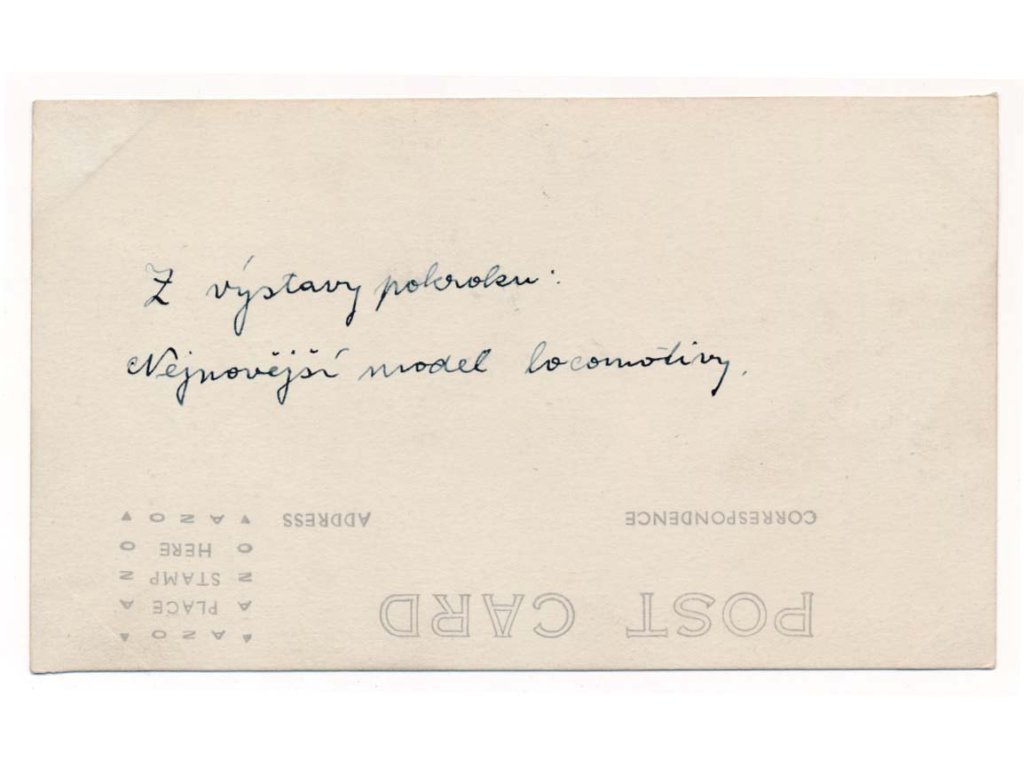 Z výstavy pokroku:
Nejnovější model locomotivy.
POST CARD
CORRESPONDENCE
ADDRESS
AZO
PLACE
STAMP
HERE
AZO